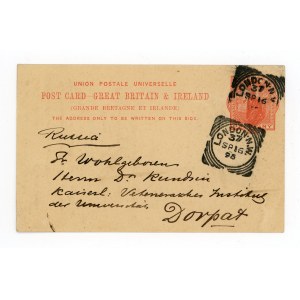 UNION POSTALE UNIVERSELLE
POST CARD-GREAT BRITAIN & IRELAND
(GRANDE BRETAGNE ET IRLANDE)
THE ADDRESS ONLY TO BE WRITTEN ON THIS SIDE.
LONDON.N.W
37
SP16
LONDON.N.W
37
SP16
98
Russia
Wohlgeboren
Herrn Dr
Kaiserl: Veterenaeres Institut
der Universität
Dorpat